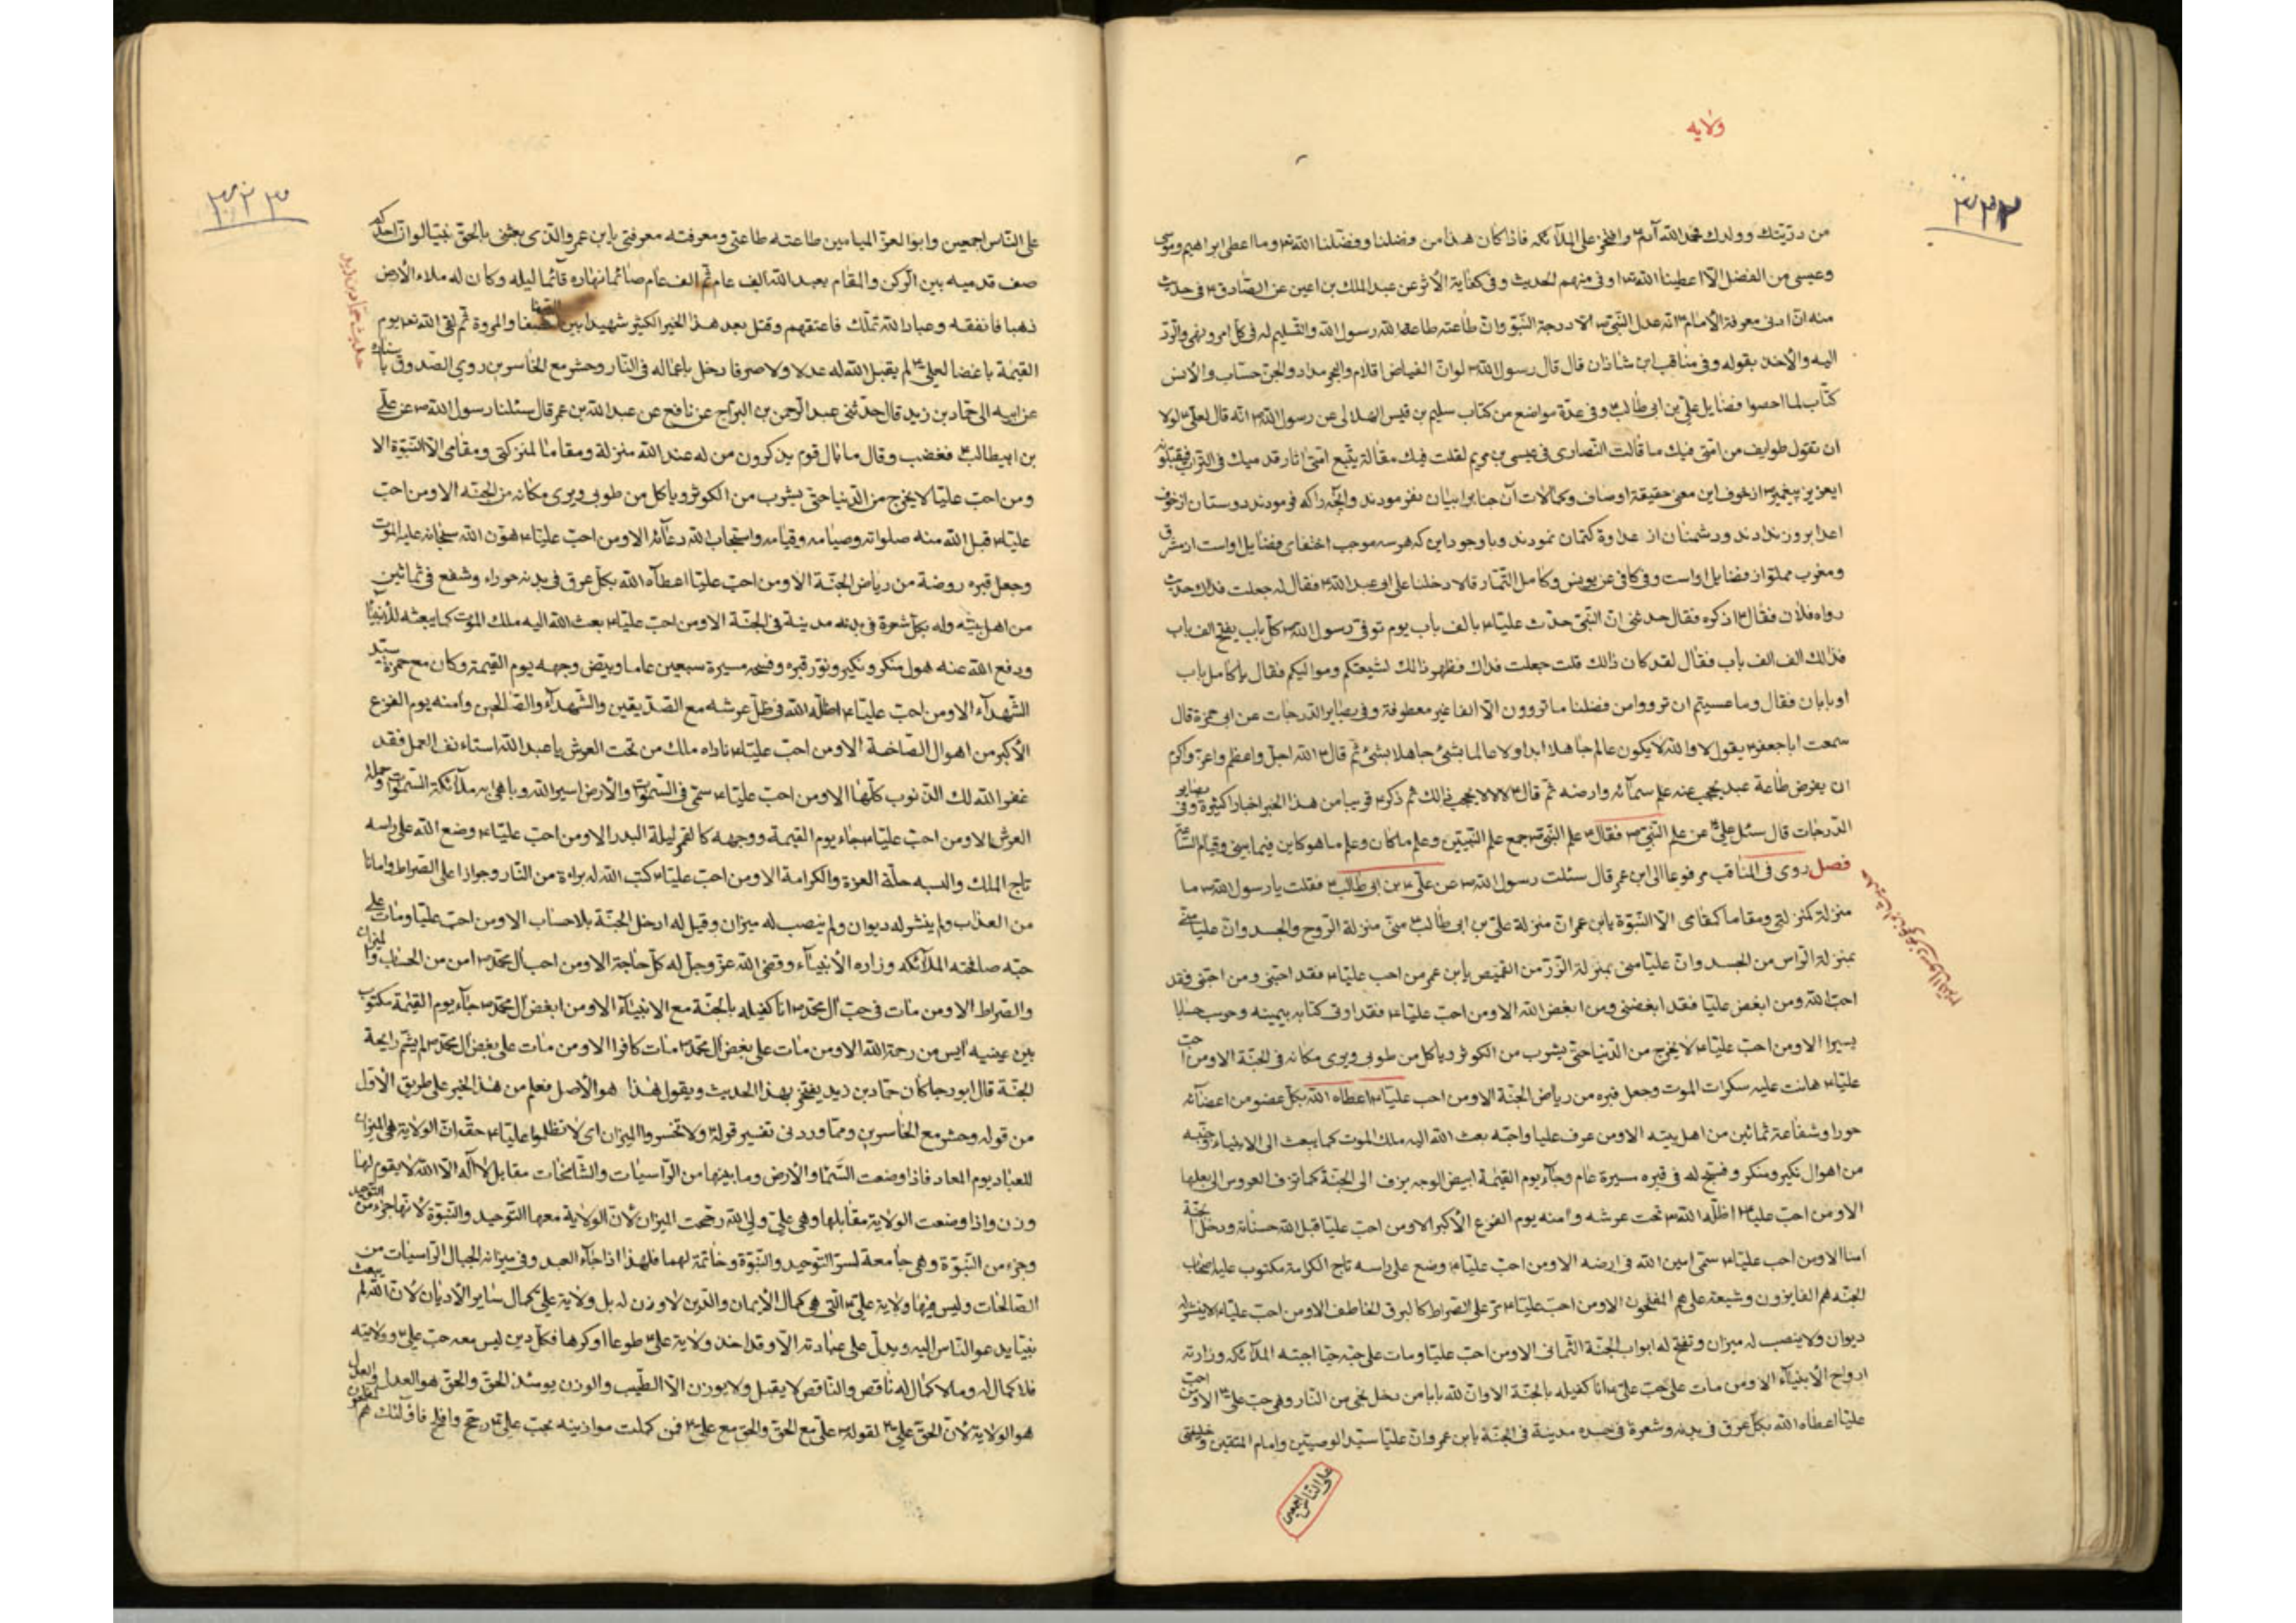 ولایه
۳۲۲
من ذرّیّتك وولدك محمد الله آدم ۴ وافتخر علی الملآئکه فاذا کان هذا من فضلنا وفضّلنا الله تع وما اعطی ابراهیم وموسی
وعیسی من الفضل الّا اعطینا الله تع اوفی منهم الحدیث وفی کفایة الأثر عن عبد الملك بن اعین عن الصّادق ۴ فی حدیث
منه انّ ادنی معرفة الأمام ۴ انّه عدل النّبی ص الّا درجة النّبوّة وانّ طاعته طاعة الله ورسول الله والتّسلیم له فی کلّ امر ونهی والردّ
الیه والأخذ بقوله وفی مناقب ابن شاذان قال قال رسول الله ص لو انّ الغیاض اقلام والبحر مداد والجن حسّاب والأنس
کتّاب لما احصوا فضایل علیّ بن ابی طالب ۴ وفی عدّة مواضع من کتاب سلیم بن قیس الهلالی عن رسول الله ص انّه قال لعلی ۴ لولا
ان تقول طوایف من امّتی فیك ما قالت النّصاری فی عیسی بن مریم لقلت فیك مقالة یتّبع امّتی اثار قدمیك فی التراب فیقبّلونه
ایعزیز پیغمبر ص از خوف این معنی حقیقة اوصاف وکمالات آن جنابرا بیان نفرمودند وآنچه را که فرمودند دوستان از خوف
اعدا بروز ندادند ودشمنان از عداوة کتمان نمودند وباوجود این که هر سه موجب اختفای فضایل اواست از مشرق
ومغرب مملوّ از فضایل اواست وفی کافی عن یونس وکامل التّمّار قالا دخلنا علی ابی عبد الله ۴ فقال له جعلت فداك حدیث
رواه فلان فقال ۴ اذکره فقال حدثنی انّ النّبیّ حدّث علیّا ۴ بالف باب یوم توفّی رسول الله ص کلّ باب یفتح الف باب
فذلك الف الف باب فقال لقد کان ذالك قلت جعلت فداك فظهر ذالك لشیعتکم وموالیکم فقال یا کامل باب
او بابان فقال وما عسیتم ان ترووا من فضلنا ما تروون الّا الفا غیر معطوفة وفی بصایر الدّرجات عن ابی حمزة قال
سمعت ابا جعفر ۴ یقول لا والله لا یکون عالم جاهلا ابدا ولا عالما بشئ جاهلا بشئ ثمّ قال ۴ الله اجلّ واعظم واعزّ واکرم
ان یفرض طاعة عبد یحجب عنه علم سمآئه وارضه ثم قال ۴ لا لا لا یحجب ذالك ثم ذکر ۴ قریبا من هذا الخبر اخبارا کثیرة وفی بصایر
الدّرجات قال سئل علیّ ۴ عن علم النّبیّ ص فقال ۴ علم النّبی ص جمع علم النّبیّین وعلم ما کان وعلم ما هو کاین فیما بینی وقیام السّاعة
فصل روی فی المناقب مرفوعا الی ابن عمر قال سئلت رسول الله ص عن علیّ ۴ بن ابی طالب ۴ فقلت یا رسول الله ص ما
منزلة کمنزلتی ومقاما کمقامی الّا النّبوّة یابن عمر انّ منزلة علیّ بن ابی طالب ۴ منّی منزلة الرّوح والجسد وانّ علیا منّی
بمنزلة الرّاس من الجسد وانّ علیّا منی بمنزلة الزّرّ من القمیص یابن عمر من احب علیّا ۴ فقد احبّنی ومن احبّنی فقد
احبّ الله ومن ابغض علیّا فقد ابغضنی ومن ابغض الله الا ومن احبّ علیّا ۴ فقد اوتی کتابه بیمینه وحوسب حسابا
یسیرا الا ومن احبّ علیّا ۴ لا یخرج من الدّنیا حتّی یشرب من الکوثر ویأکل من طوبی ویری مکانه فی الجنّة الا ومن احبّ
علیّا ۴ هانت علیه سکرات الموت وجعل قبره من ریاض الجنّة الا ومن احب علیّا ۴ اعطاه الله بکلّ عضو من اعضآئه
حورا وشفاعة ثمانین من اهل بیته الا ومن عرف علیا واحبّه بعث الله الیه ملك الموت کما یبعث الی الانبیاء وجنّبه
من اهوال نکیر ومنکر وفسّح له فی قبره مسیرة عام وجآء یوم القیٰمة ابیض الوجه یزف الی الجنّة کما تزف العروس الی بعلها
الا ومن احبّ علیّا ۴ اظلّه الله تع تحت عرشه وامنه یوم الفزع الأکبر الا ومن احبّ علیّا قبل الله حسناته ودخل الجنّة
امنا الا ومن احب علیّا ۴ سمّی امین الله فی ارضه الا ومن احبّ علیّا ۴ وضع علی راسه تاج الکرامة مکتوب علیه اصحاب
الجنّه هم الفایزون وشیعة علی هم المفلحون الا ومن احبّ علیّا ۴ مرّ علی الصّراط کالبرق الخاطف الا ومن احبّ علیّا ۴ لا ینشر له
دیوان ولا ینصب له میزان وتفتح له ابواب الجنّة الثّمانی الا ومن احبّ علیّا ومات علی حبّه حیّا احبّته الملآئکه وزارته
ارواح الأنبیآء الا ومن مات علی حبّ علیّ ۴ انا کفیله بالجنّة الا وانّ لله بابا من دخل نجی من النّار وهی حبّ علیّ ۴ الا ومن احبّ
علیّا اعطاه الله بکلّ عرق فی بدنه وشعرة فی جسده مدینة فی الجنّة یابن عمر وانّ علیّا سیّد الوصیّین وامام المتّقین وخلیفتی
علی النّاس اجمعین
۳۲۳
علی النّاس اجمعین وابو الغرّ المیامین طاعته طاعتی ومعرفته معرفتی یابن عمر والّذی بعثنی بالحقّ نبیّا لو انّ احدکم
صف قدمیه بین الرّکن والمقام یعبد الله الف عام ثمّ الف عام صائما نهاره قائما لیله وکان له ملاء الأرض
ذهبا فانفقه وعباد الله تملّك فاعتقهم وقتل بعد هذا الخیر الکثیر شهیدا بین الصّفا والمروة ثمّ لقی الله تع یوم
القیٰمة باغضا لعلی ۴ لم یقبل الله له عدلا ولا صرفا دخل باعماله فی النّار وحشر مع الخاسرین روی الصّدوق باسناده
عن ابیه الی حمّاد بن زید قال حدّثنی عبد الرّحمن بن السّرّاج عن نافع عن عبد الله بن عمر قال سئلنا رسول الله ص عن علیّ
بن ابیطالب ۴ فغضب وقال ما بال قوم یذکرون من له عند الله منزلة ومقاما کمنزلتی ومقامی الّا النّبوّة الا
ومن احبّ علیّا لا یخرج من الدّنیا حتّی یشرب من الکوثر ویأکل من طوبی ویری مکانه من الجنّه الا ومن احبّ
علیّا ۴ قبل الله منه صلواته وصیامه وقیامه واستجاب الله دعآئه الا ومن احبّ علیّا ۴ هوّن الله سبحانه علیه الموت
وجعل قبره روضة من ریاض الجنّة الا ومن احبّ علیّا اعطاه الله بکلّ عرق فی بدنه حوراء وشفع فی ثمانین
من اهل بیته وله بکلّ شعرة فی بدنه مدینة فی الجنّة الا ومن احبّ علیّا ۴ بعث الله الیه ملك الموت کما یبعثه للأنبیآء
ودفع الله عنه هول منکر ونکیر ونوّر قبره وفسحه مسیرة سبعین عاما وبیّض وجهه یوم القیٰمة وکان مع حمزة سیّد
الشّهدآء الا ومن احبّ علیّا ۴ اظلّه الله فی ظلّ عرشه مع الصّدّیقین والشّهدآء والصّالحین وامنه یوم الفزع
الأکبر من اهوال الصّاخة الا ومن احبّ علیّا ۴ ناداه ملك من تحت العرش یا عبد الله استاءنف العمل فقد
غفر الله لك الذّنوب کلّها الا ومن احبّ علیّا ۴ سمّی فی السّموات والأرض اسیر الله وباهی به ملآئکة السّموات وحملة
العرش الا ومن احبّ علیّا ۴ جاء یوم القیٰمة ووجهه کالقمر لیلة البدر الا ومن احبّ علیّا ۴ وضع الله علی راسه
تاج الملك والبسه حلّة العزة والکرامة الا ومن احبّ علیّا ۴ کتب الله له براءة من النّار وجوازا علی الصّراط وامانا
من العذاب ولم ینشر له دیوان ولم ینصب له میزان وقیل له ادخل الجنّة بلا حساب الا ومن احبّ علیّا ومات علی
حبّه صافحته الملآئکه وزاره الأنبیآء وقضی الله عزّ وجلّ له کلّ حاجة الا ومن احب آل محمّد ص امن من الحساب والمیزان
والصّراط الا ومن مات فی حبّ آل محمّد ص انا کفیله بالجنّة مع الانبیآء الا ومن ابغض آل محمّد ص جآء یوم القیٰمة مکتوب
بین عینیه ایس من رحمة الله الا ومن مات علی بغض آل محمّد ص مات کافرا الا ومن مات علی بغض آل محمّد ص لم یشمّ رایحة
الجنّة قال ابو رجا کان حمّاد بن زید یفتخر بهذا الحدیث ویقول هٰذا هو الأصل فعلم من هٰذا الخبر علی طریق الأوّل
من قوله وحشر مع الخاسرین وممّا ورد فی تفسیر قوله تع ولا تخسروا المیزان ای لا تظلموا علیّا ۴ حقّه انّ الولایة هی المیزان
للعباد یوم المعاد فاذا وضعت السّماء والأرض وما بینهما من الرّاسیات والشّامخات مقابل لا آله الّا الله لا یقوم لها
وزن واذا وضعت الولایة مقابلها وهی علیّ ولیّ الله رجّحت المیزان لأنّ الولایة معها التّوحید والنّبوّة لانّها جزء من التّوحید
وجزء من النّبوّة وهی جامعة لسرّ التّوحید والنّبوّة وخاتمة لهما فلهذا اذا جآء العبد وفی میزانه الجبال الرّاسیات من
الصّالحات ولیس فیها ولایة علیّ ۴ الّتی هی کمال الأیمان والدّین لا وزن له بل ولایة علیّ کمال سایر الأدیان لأنّ الله لم یبعث
نبیّا یدعو النّاس الیه ویدلّ علی عبادته الّا وقد اخذ ولایة علی ۴ طوعا او کرها فکلّ دین لیس معه حبّ علی ۴ وولایته
فلا کمال له وما لا کمال له ناقص والنّاقص لا یقبل ولا یوزن الّا الطّیّب والوزن یومئذ الحقّ والحقّ هو العدل والعدل
هو الولایة لأنّ الحقّ علیّ ۴ لقوله ص علیّ مع الحقّ والحقّ مع علیّ ۴ فمن کملت موازینه بحبّ علیّ ۴ رجّح وافلح فاولئك هم المفلحون
حدیث حمّاد بن زید